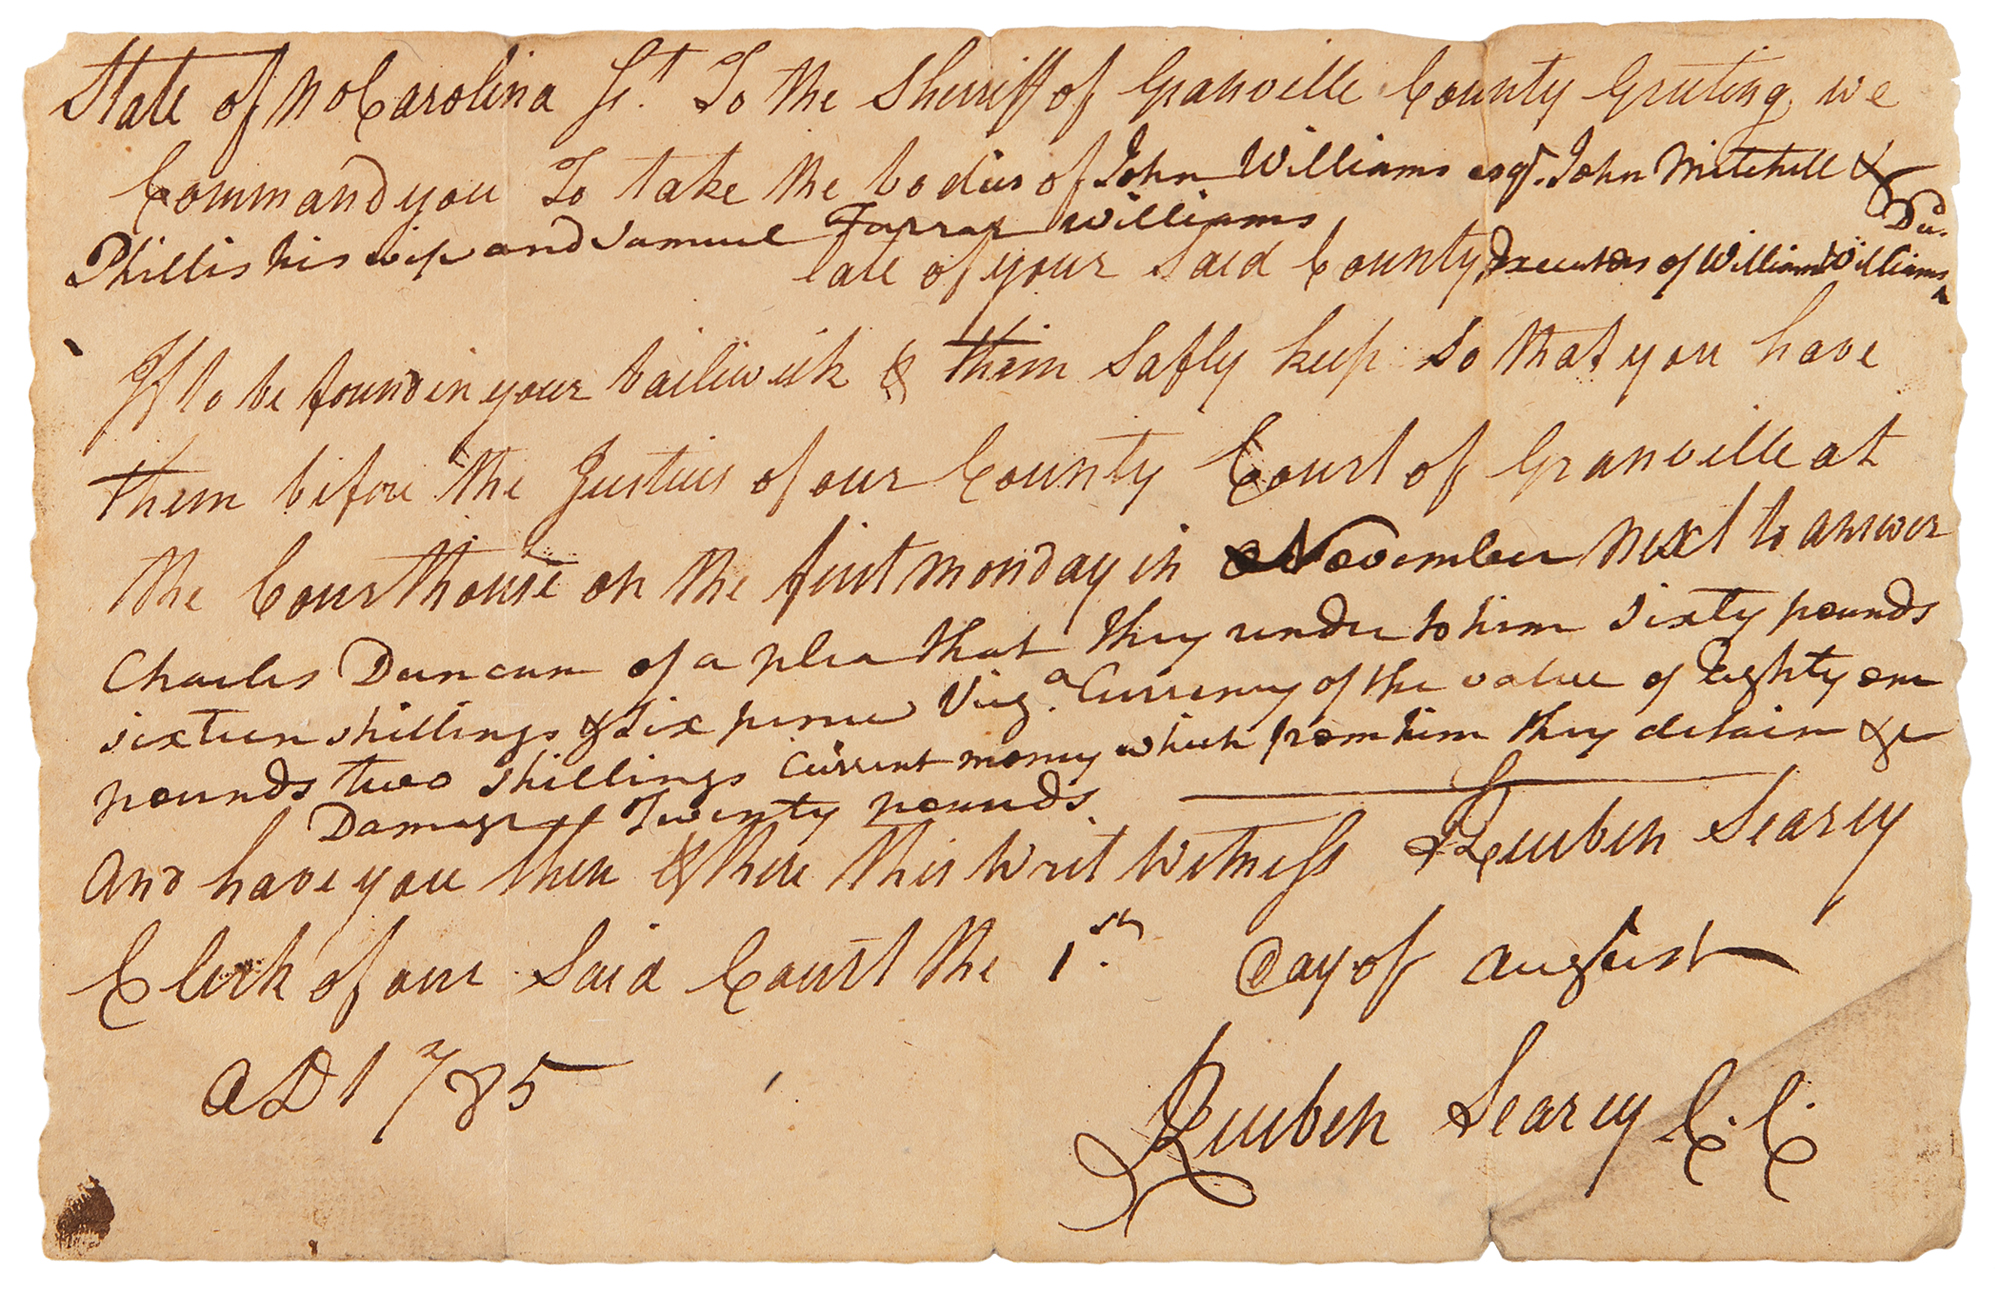 State of No Carolina Sct. To the Sherriff of Granville County Greeting we
Command you To take the bodies of John Williams esqr. John Mitchell &
Phillis his wife and Samuel Farrar Williams
late of your Said County Executors of William Williams Decd.
If to be found in your bailiwick & them Safly keep So that you have
them before the Justices of our County Court of Granville at
the Courthouse on the first monday in November Next to answer
Charles Duncan of a plea that they render to him Sixty pounds
sixteen shillings & Six pence Virga. Currency of the value of Eighty one
pounds two shillings Current money which from him they detain &c
Damage Twenty pounds.
And have you then & there this Writ Witness Reuben Searcy
Clerk of our Said Court the 1st. Day of August
AD 1785
Reuben Searcy C.C.